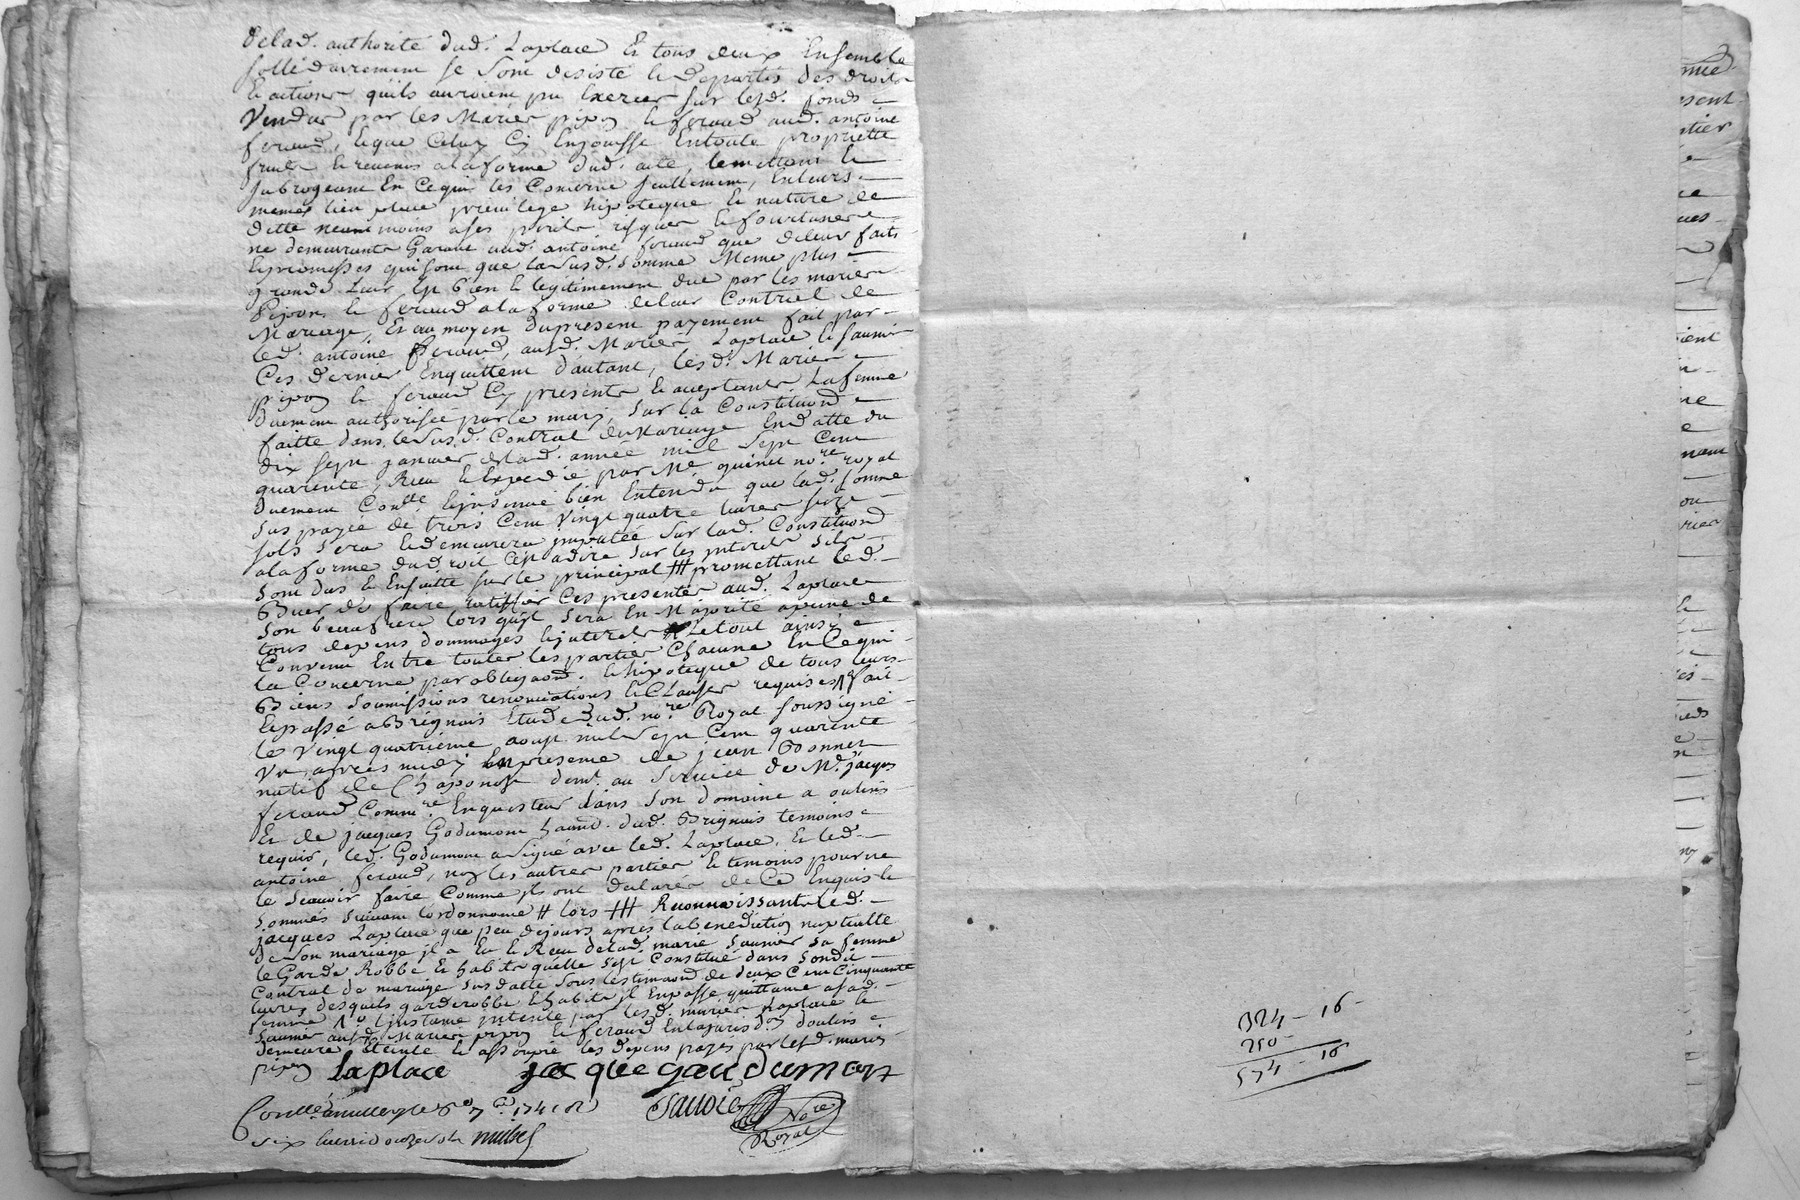 delad. authorité dud. Laplace Et tous deux Ensemble
sollidairement se sont desisté et departis des droits
Et actions quils auroient pu Exercer sur lesd. fonds
Vendus par les Mariés pipon et feraud aud. antoine
feraud, Et que Celuy Cy Enjouisse Entoute proprietté
fruits Et revenus alaforme dud. acte, lemettant Et
subrogeant En Cequi les Concerne seullement, Enleurs
memes lieu place privilege hipoteque Et nature de
dette neanmoins ases perils risques Et fourtunes
ne demeurants Garants aud. antoine feraud que deleur faits
Et promesses qui sont que lasusd. somme Meme plus
grande Leur Est bien Et legitimement due par les mariés
pipon Et feraud alaforme deleur Contrat de
Mariage, Et au moyen dupresent payement fait par
led. antoine feraud, ausd. Mariés Laplace Et saunier
Ces dernier Enquittent d'autant, lesd. Mariés
pipon Et feraud Cy presents Et acceptants La femme
Duement authorisée par le mary, sur la Constitution
faitte dans lesusd. Contrat de Mariage Endatte du
dix sept janvier delad. année mil sept Cent
quarente, Receu Et Expedié par Me quinet nore. royal
Duement Conllé. Et insinué bien Entendu que lad. somme
sus payée de trois Cent Vingt quatre livres seize
sols sera Et demeurera imputée sur lad. Constituond
alaforme dudroit Cest adire sur les interets sils
sont dus Et Ensuitte sur le principal ╫ promettant led.
son beaufrere lors quil sera En Majorité apeine de
tous depens dommages Et interets Letout ainsi
Convenu Entre toutes les parties Chacune En Cequi
la Concerne par obligaon. Et hipoteque de tous leurs
Biens soumissions renonciations Et Clauses requises fait
Et passé a Brignais Etude dud. nore. Royal soussigné
les Vingt quatrieme aoust mil sept Cent quarente
Vn apres midy En presence de jean Bonnet
natif de Chaponost demt. au service de Mr. jacques
feraud Commre. Enquesteur dans son domaine a oulins
Et de jacques Godumont dud. Brignais temoins
requis, led. Godumont a signé avec led. Laplace, Et led.
antoine feraud, non les autres parties Et temoins pour ne
le scavoir faire Comme ils ont declarés de Ce Enquis Et
sommés suivant lordonnance # lors ╫ Reconnaissant led.
jacques Laplace que peu dejours apres labenediction nuptialle
de son mariage il a Eu Et Receu delad. marie saunier sa femme
le Garde Robbe Et habits quelle sest Constitué dans sondit
Contrat de mariage susdatte sous lestimaond de deux Cent Cinquante
livres desquels garderobbe Et habits il Enpasse quittance asad.
femme linstance intentée par lesd. mariés Laplace Et
saunier ausd. Mariés pipon Et feraud Enlajurisdon doulins
demeure Eteinte Et assoupie les depens payés par lesd. mariés
pipon Laplace jacque gaudumont
Savoie Nore
Royal
324 – 16
250
574 – 16